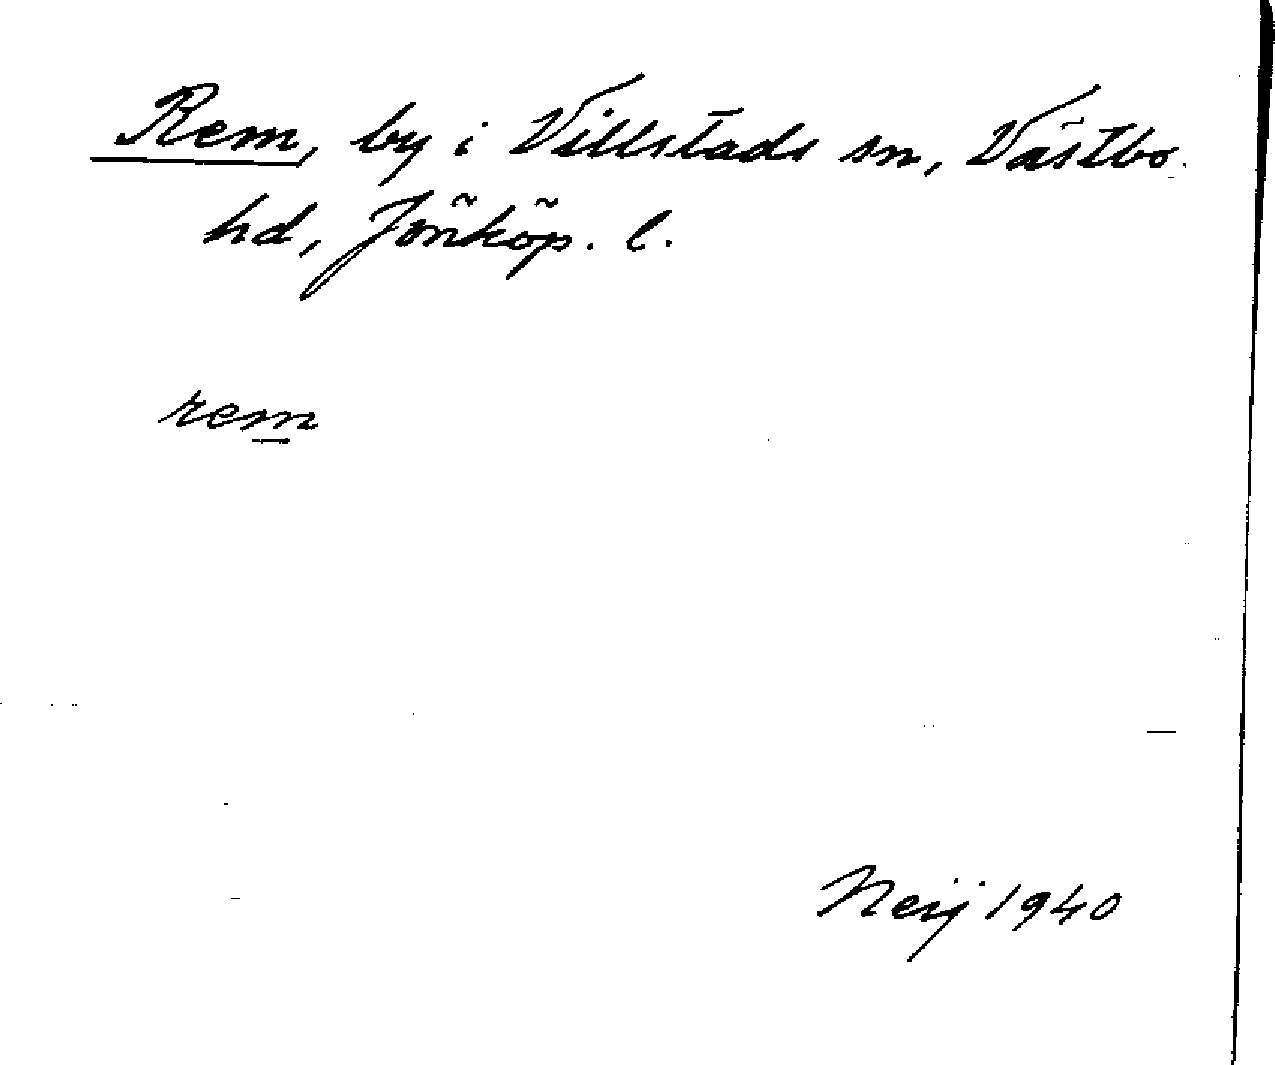 Rem, by i Villstads sn, Västbo
hd, Jönköp. l.
rem
Neij 1940